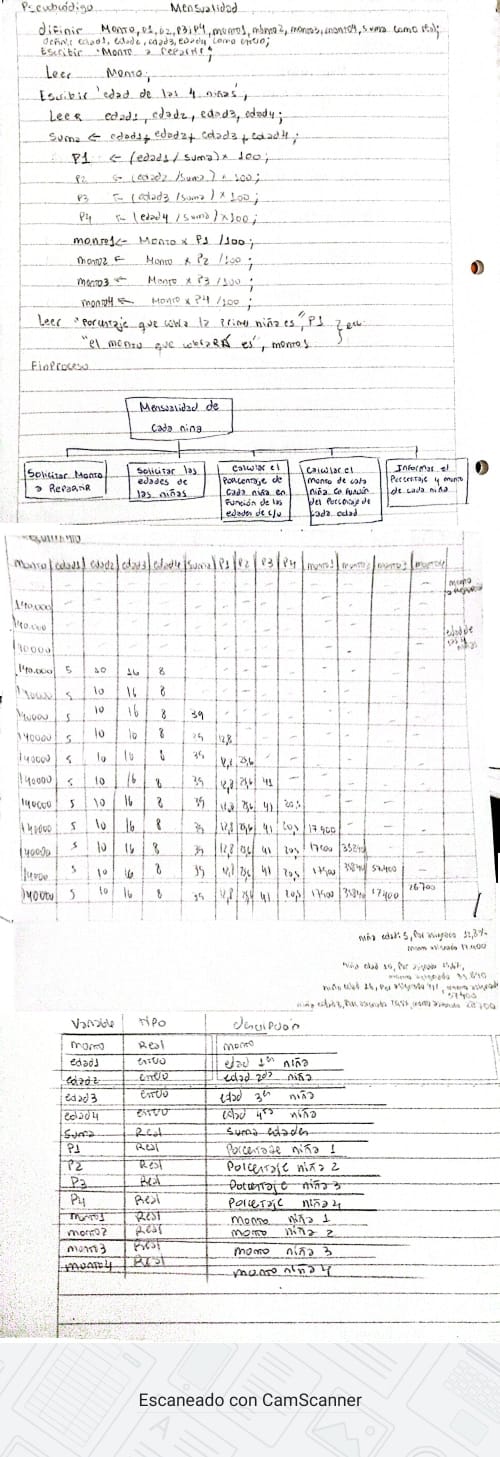 Pseudocódigo Mensualidad
difinir Monto, P1, P2, P3, P4, monto1, monto2, monto3, monto4, suma como real;
definir edad1, edad2, edad3, edad4 como entero;
Escribir "Monto a repartir";
Leer Monto;
Escribir "edad de las 4 niñas",
Leer edad1, edad2, edad3, edad4;
Suma ← edad1 + edad2 + edad3 + edad4;
P1 ← (edad1 / suma) x 100;
P2 ← (edad2 / suma) x 100;
P3 ← (edad3 / suma) x 100;
P4 ← (edad4 / suma) x 100;
monto1 ← Monto x P1 /100;
monto2 ← Monto x P2 /100;
monto3 ← Monto x P3 /100;
monto4 ← Monto x P4 /100;
Leer "Porcentaje que cobra la primer niña es", P1
"el monto que cobrará es", monto1
FinProceso
Mensualidad de
cada nina
Solicitar Monto
a Repartir
Solicitar las
edades de
las niñas
Calcular el
Porcentaje de
cada niña en
Función de las
edades de c/u
Calcular el
monto de cada
niña en función
del Porcentaje de
cada edad
Informar el
Porcentaje y monto
de cada niña
monto edad1 edad2 edad3 edad4 suma P1 P2 P3 P4 monto1 monto2 monto3 monto4
140.000 - - - - - - - - - - - - -
140.000 - - - - - - - - - - -
edad de
las 4
niñas
140.000 5 10 16 8 - - - - - - -
140000 5 10 16 8 - - - - - -
140000 5 10 16 8 39 - - - - -
140000 5 10 10 8 12,8 - - - -
140000 5 10 8 12,8 25,6 - - -
140000 5 10 16 8 39 12,8 25,6 41 - - - -
140000 5 10 16 8 39 12,8 25,6 41 20,5 - - -
140000 5 10 16 8 39 12,8 25,6 41 20,5 17900 - -
140000 5 10 16 8 39 12,8 25,6 41 20,5 17900 35840 -
5 10 16 8 39 12,8 25,6 41 20,5 17900 35840 57400
140000 5 10 16 8 39 12,8 25,6 41 20,5 17900 35840 57400 28700
niña edad: 5, Por asignado 12,8%
monto asignado
Variable tipo descripción
monto Real monto
edad1 entero edad 1era niña
edad2 entero edad 2da niña
edad3 entero edad 3era niña
edad4 entero edad 4ta niña
Suma Real suma edades
P1 Real Porcentaje niña 1
P2 Real Porcentaje niña 2
P3 Real Porcentaje niña 3
P4 Real Porcentaje niña 4
monto1 Real monto niña 1
monto2 Real monto niña 2
monto3 Real monto niña 3
monto4 Real monto niña 4
Escaneado con CamScanner